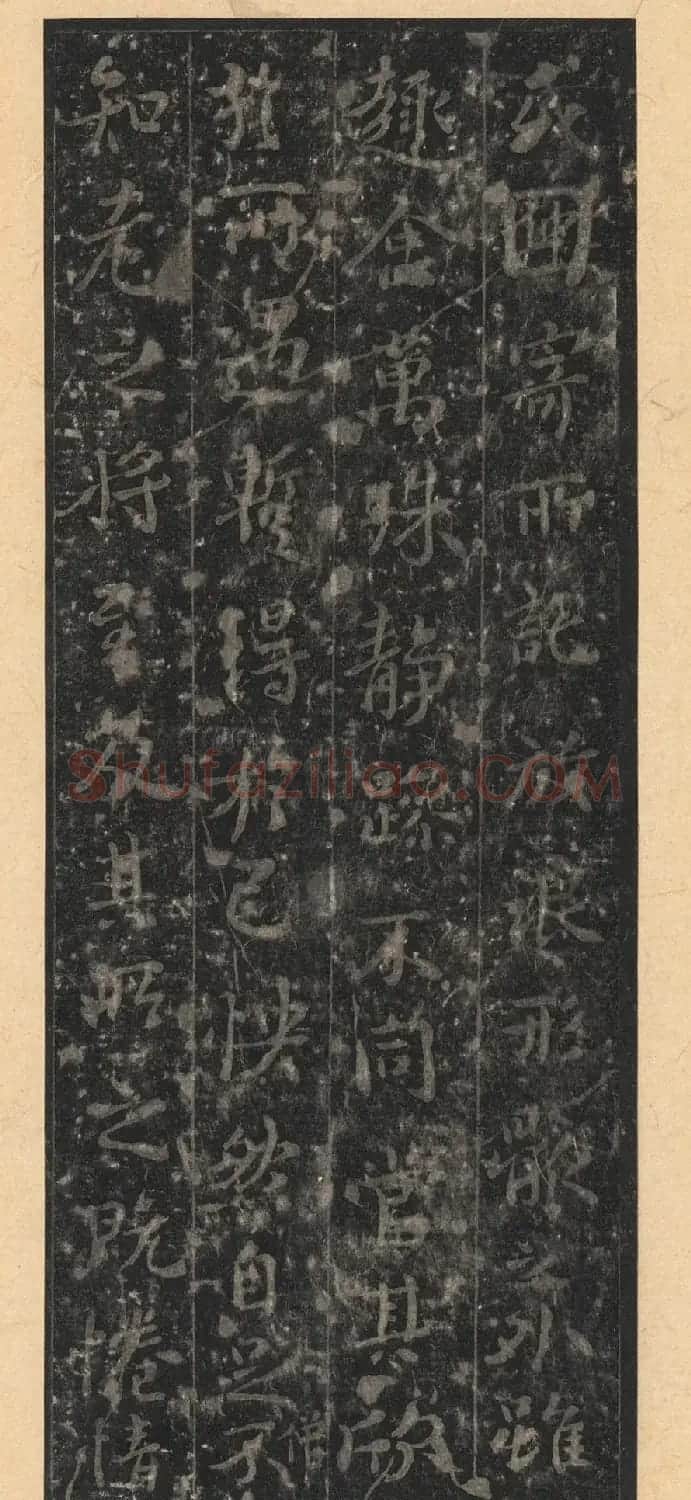 或因寄所託放浪形骸之外雖
趣舍萬殊静躁不同當其欣
於所遇暫得於己快然自足不
僧
知老之將至及其所之既惓情
Shufaziliao.COM